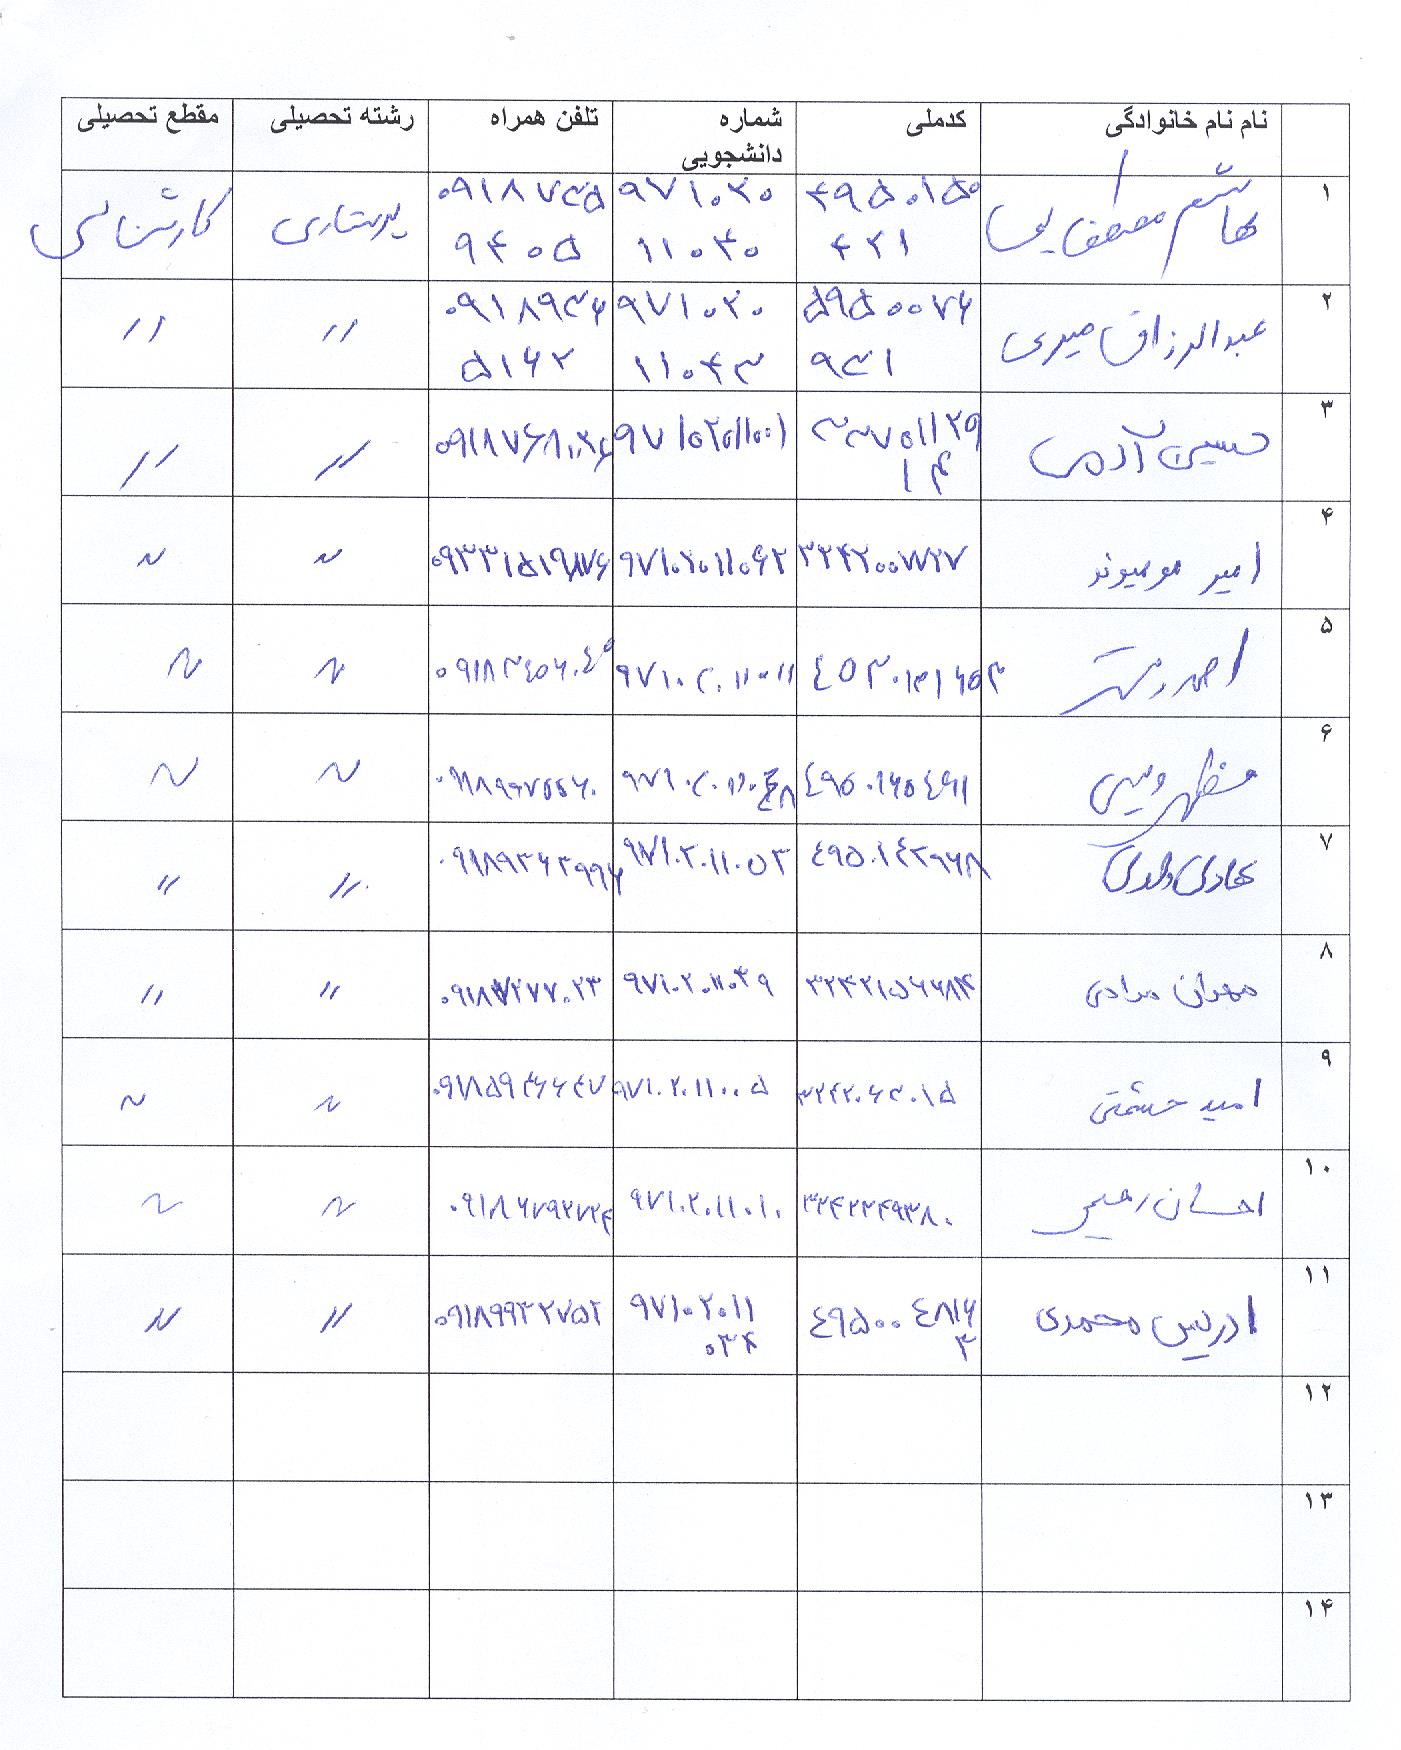 نام نام خانوادگی کدملی شماره دانشجویی تلفن همراه رشته تحصیلی مقطع تحصیلی
۱ هاشم مصطفایی ۴۹۵۰۱۵۰۴۲۱ ۹۷۱۰۲۰۱۱۰۴۰ پرستاری کارشناسی
۲ عبدالرزاق میری ۵۹۵۰۰۷۶۹۳۱ ۹۷۱۰۲۰۱۱۰۴۳ ۰۹۱۸۹۳۶۵۱۶۲ // //
۳ حسین آدمی ۳۳۷۰۱۱۲۹۱۴ ۹۷۱۰۲۰۱۱۰۰۱ // //
۴ امیر مومیوند ۳۲۴۲۰۰۷۷۲۷ ۹۷۱۰۲۰۱۱۰۶۲ ۰۹۳۳۱۵۱۹۸۷۶ // //
۵ احمد ۹۷۱۰۲۰۱۱۰۱۱ // //
۶ مظهر ویسی ۴۹۵۰۱۶۵۴۶۱ ۰۹۱۸۹۹۷۵۵۶۰ // //
۷ هادی ۴۹۵۰۱۴۲۹۶۸ ۹۷۱۰۲۰۱۱۰۵۳ ۰۹۱۸۹۳۶۲۹۹۶ // //
۸ مهران مرادی ۳۲۴۲۱۵۶۶۸۴ ۹۷۱۰۲۰۱۱۰۳۹ ۰۹۱۸۷۲۷۷۰۲۳ // //
۹ امید حشمتی ۳۲۴۲۰۶۳۰۱۵ ۹۷۱۰۲۰۱۱۰۰۵ ۰۹۱۸۵۹۳۶۶۴۷ // //
۱۰ احسان رحیمی ۳۲۴۲۲۴۹۳۸۰ ۹۷۱۰۲۰۱۱۰۱۰ ۰۹۱۸۶۷۹۲۷۲۴ // //
۱۱ ادریس محمدی ۴۹۵۰۰۴۸۱۶۳ ۹۷۱۰۲۰۱۱۰۳۴ ۰۹۱۸۹۹۳۲۷۵۲ // //
۱۲
۱۳
۱۴